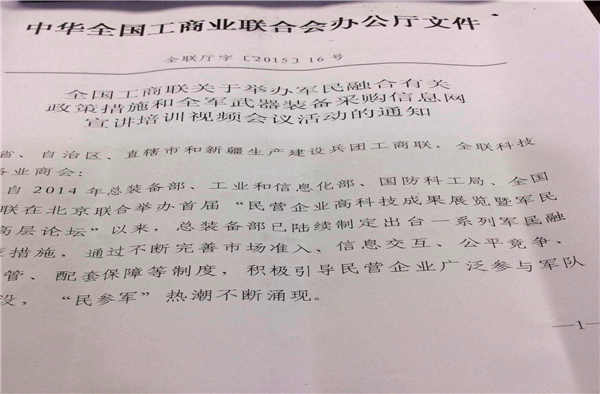 中华全国工商业联合会办公厅文件
全联厅字〔2015〕16号
全国工商联关于举办军民融合有关
政策措施和全军武器装备采购信息网
宣讲培训视频会议活动的通知
省、自治区、直辖市和新疆生产建设兵团工商联，全联科技
备业商会：
自2014年总装备部、工业和信息化部、国防科工局、全国
联在北京联合举办首届“民营企业高科技成果展览暨军民
高层论坛”以来，总装备部已陆续制定出台一系列军民融
措施，通过不断完善市场准入、信息交互、公平竞争、
管、配套保障等制度，积极引导民营企业广泛参与军队
设，“民参军”热潮不断涌现。
—1